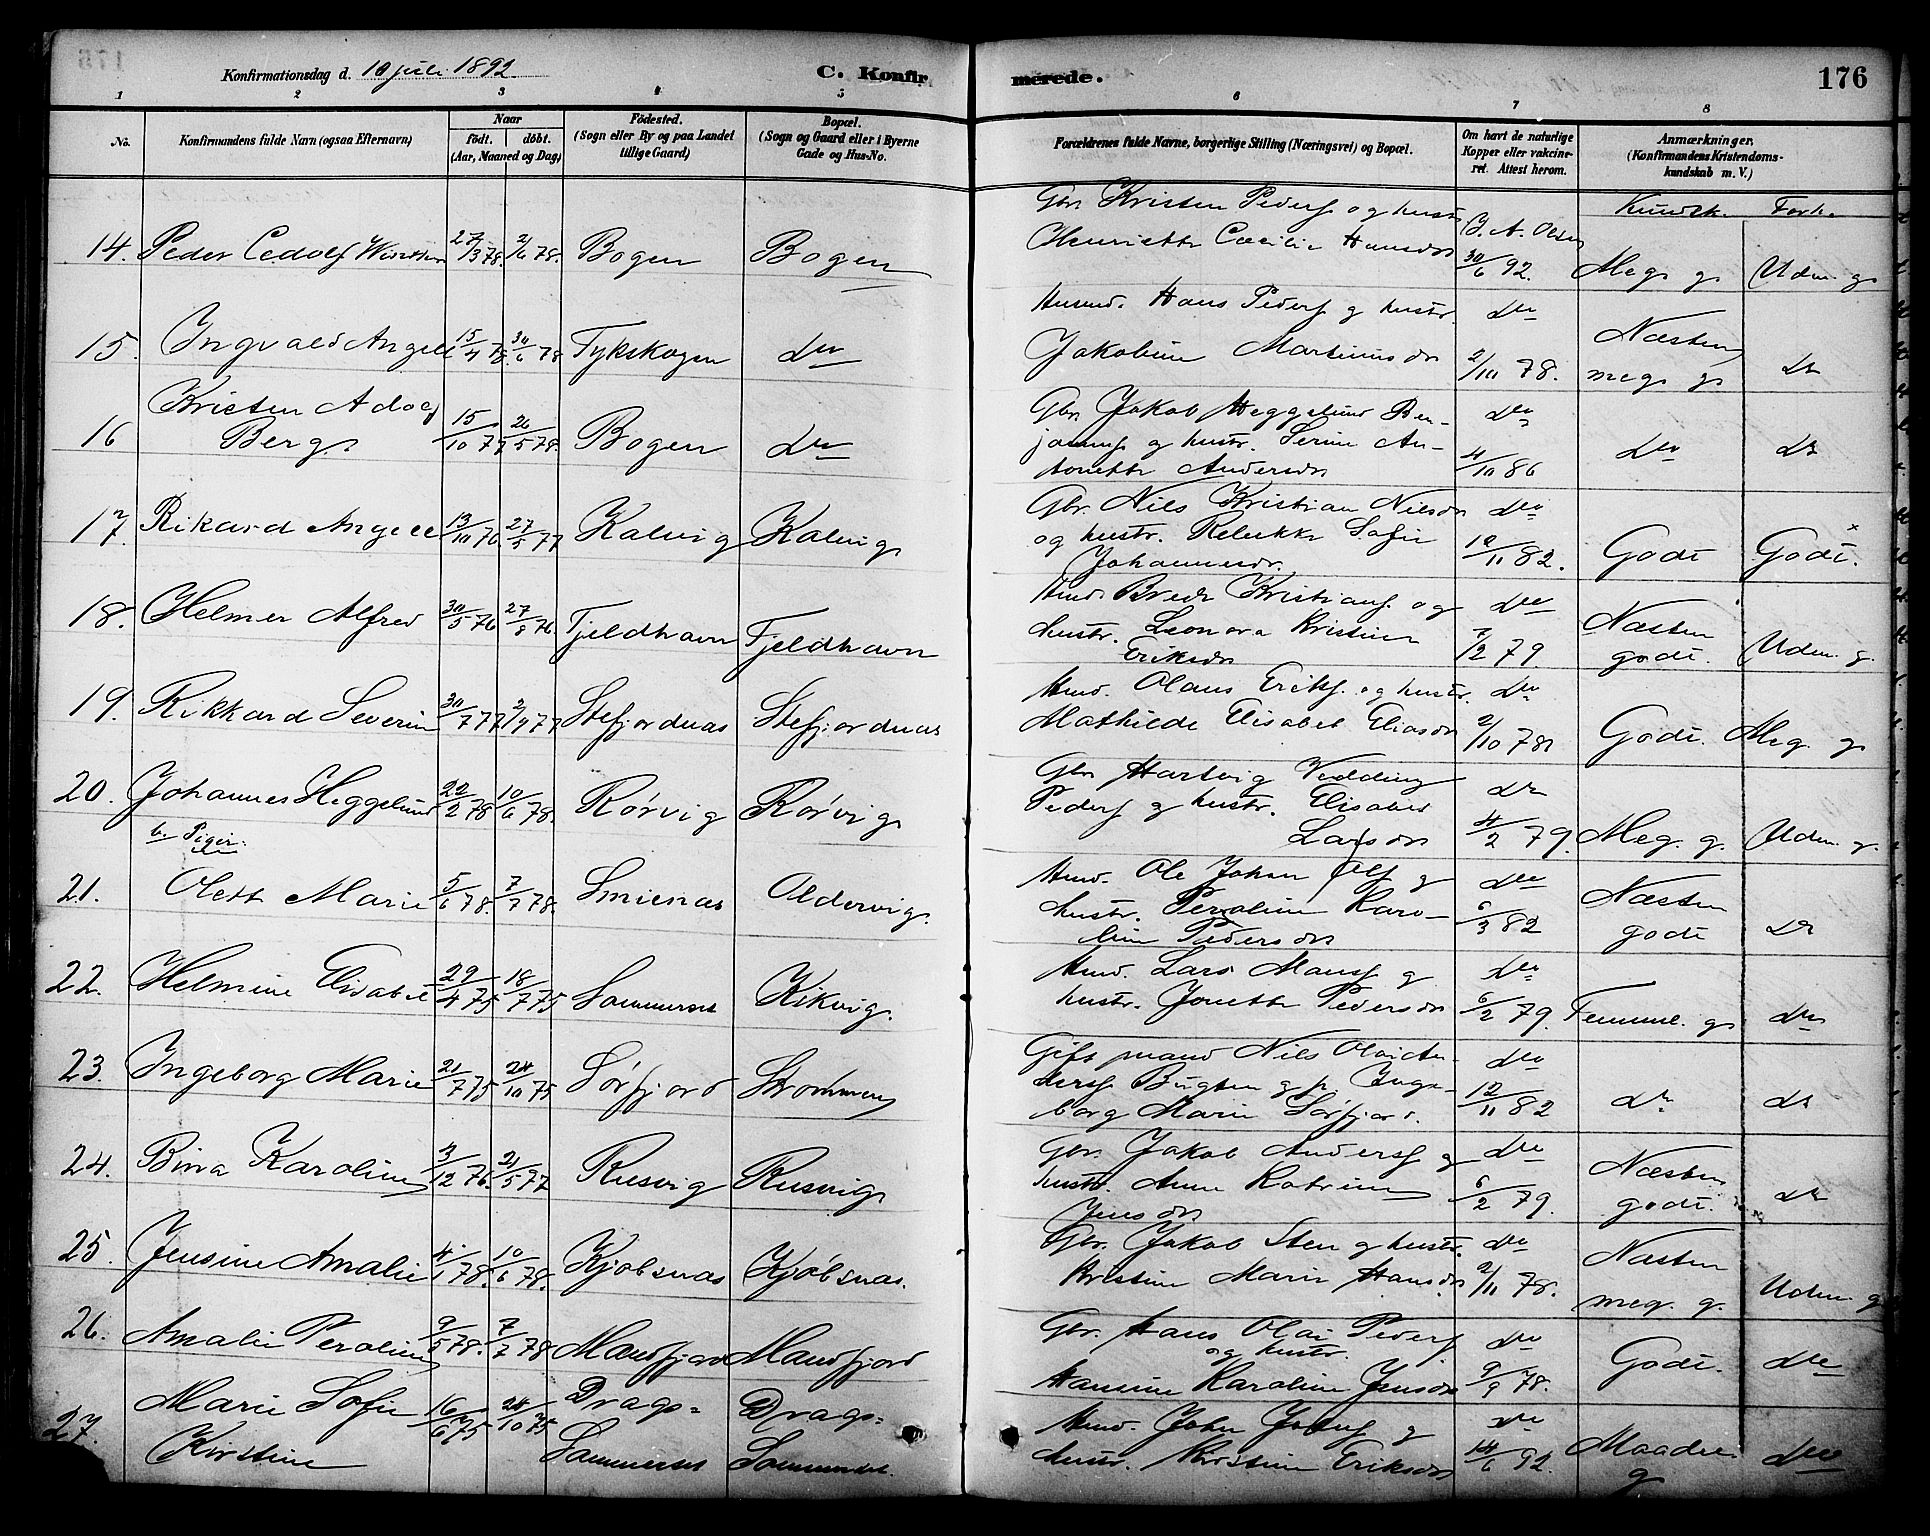 Konfirmationsdag d. 10 juli 1892. C. Konfirmerede. 176
1 2 3 4 5 6 7 8
No. Konfirmandens fulde Navn (ogsaa Efternavn) Naar födt. döbt. (Aar, Maaned og Dag) Födested. (Sogn eller By og paa Landet tillige Gaard) Bopæl. (Sogn og Gaard eller i Byerne Gade og Hus-No. Forældrenes fulde Navne, borgerlige Stilling (Næringsvei) og Bopæl. Om havt de naturlige Kopper eller vakcineret. Attest herom. Anmærkninger. (Konfirmandens Kristendomskundskab m. V.)
Kundsk. Forh.
14. Peder Cedolf 27/3 78. 2/6 78. Bogen Bogen
Gbr. Kristen Peders. og hustr.
Henriette Cæcilie Hansdr
30/6 92. Meg. g. Udm. g.
15. Ingvald Angell 15/4 78. 30/6 78. Tykskogen do
Husmd. Hans Peders. g hustr.
Jakobine Martinusdr
do 2/10 78. Næsten meg. g. do
16 Kristen Adolf Berg 15/10 77 26/5 78. Bogen do
Gbr. Jakob Heggelund Benjamins. g hustr. Serine Antonette Andersdr
do 4/10 86 do do
17. Rikard Angell 13/10 76. 27/5 77 Kalvig Kalvig
Gbr. Nils Kristian Nilsen
og hustr. Rebekka Sofie
Johannesdr.
do 10/11 82. Godt Godt.
18. Helmer Alfred 30/5 76 27/8 76. Fjeldhavn Fjeldhavn
Hmd. Bredr Kristians. og
hustr. Leonora Kristine
Eriksdr
do 7/2 79 Næsten godt. Udm. g.
19. Rikkard Severin 30/7 77 2/9 77 Stefjordnæs Stefjordnæs
Hmd. Olaus Eriks. og hustr.
Mathilde Elisabet Eliasdr
do 2/10 78. Godt. Meg. g
20. Johannes Heggelund 22/2 78 10/6 78. Rørvig Rørvig
Gbr Hartvig Vedding
Peders g hustr. Elisabet
Larsdr
do 4/2 79. Meg. g. Udm. g.
b. Piger.
21. Olett Marie 5/6 78. 7/7 78. Smienæs Aldervig.
Hmd. Ole Johan Ols g
hustr. Peroline Karoline Pedersdr
do 6/3 82 Næsten godt do
22. Helmine Elisabet 29/4 75 18/7 75 Sommerset Kikvig.
Hmd. Lars Mons. g
hustr. Jonette Pedersdr
do 6/2 79. Temmel. g do
23. Ingeborg Marie 21/7 75 24/10 75 Sørfjord Strømmen
Gift mand Nils Olai Anders. Bugten g p. Ingeborg Marie Sørfjord.
do 12/11 82 do do
24. Bina Karoline 3/12 76. 21/5 77 Rusvig Rusvig
Gbr. Jakob Anders. g
hustr. Anne Katrine
Jensdr
do 6/2 79. Næsten godt. do
25. Jensine Amalie 4/1 78. 10/6 78. Kjøbsnæs Kjøbsnæs.
Gbr. Jakob Sten g hustr.
Kristine Marie Hansdr
do 2/11 78. Næsten meg. g. Udm. g
26. Amalie Peroline 9/5 78. 7/7 78 Mandfjord Mandfjord
Gbr. Hans Olai Peders.
og hustr.
Hansine Karoline Jensdr
do 9/9 78. Godt. do
27. Marie Sofie Kirstine 16/6 75 24/10 75 Drags= Sommerset Drags= Sommerset.
Hmd. John Johns. g
hustr. Kristine Eriksdr
do 14/6 92. Maadel. g do